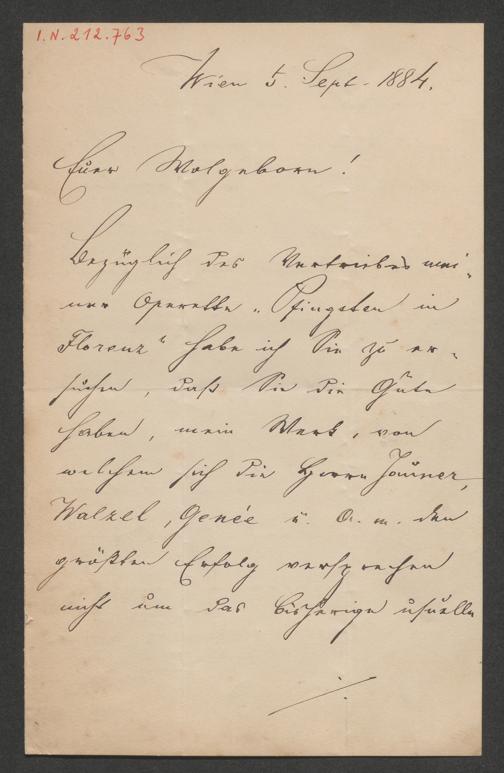 I.N.212.763
Wien 5. Sept. 1884.
Euer Wolgeborn!
Bezüglich des Vertriebes mei-
ner Operette „Pfingsten in
Florenz“ habe ich Sie zu er-
suchen, daß Sie die Güte
haben, mein Werk, von
welchem sich die Herrn Jauner,
Walzel, Genée u. A. m. den
größten Erfolg versprechen
nicht um das bisherige usuelle
./.